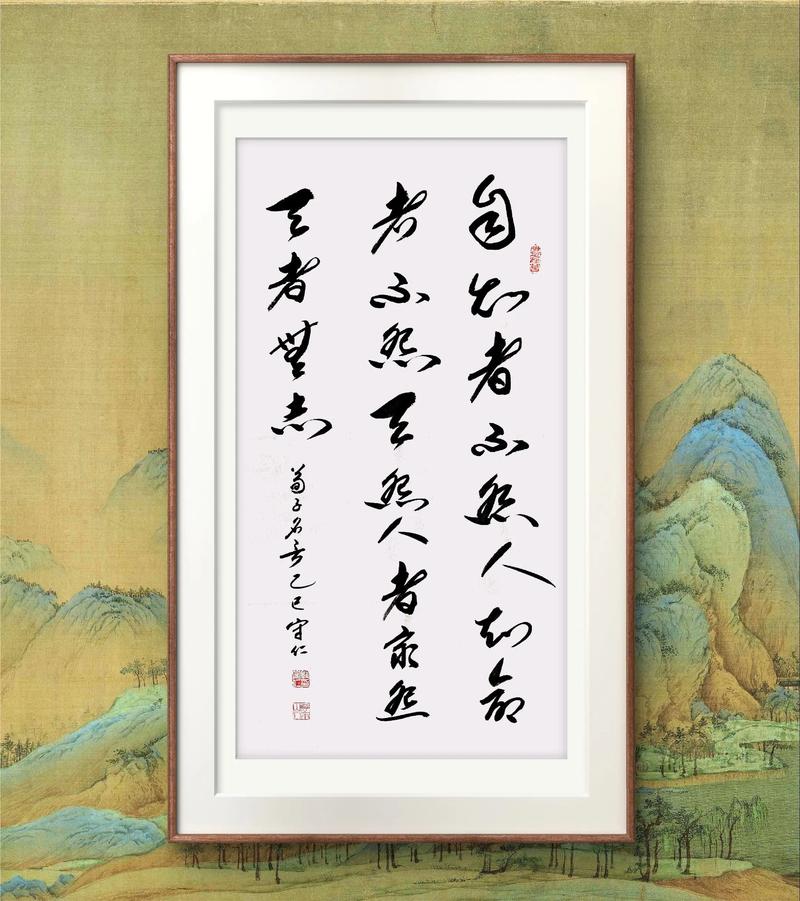 自知者不怨人知命
者不怨天怨人者窮怨
天者無志
荀子名言乙巳守仁